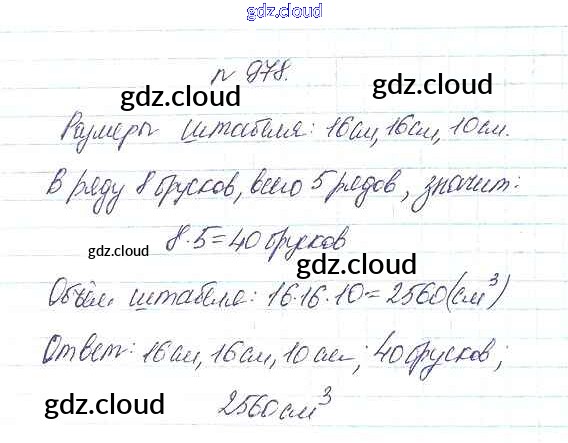 gdz.cloud
n 978.
gdz.cloud gdz.cloud
Размеры штабеля: 16см, 16см, 10см.
В ряду 8 брусков, всего 5 рядов, значит:
8·5=40 брусков
gdz.cloud gdz.cloud
Объём штабеля: 16·16·10=2560(см³)
Ответ: 16см, 16см, 10см; 40 брусков;
2560см³
gdz.cloud gdz.cloud